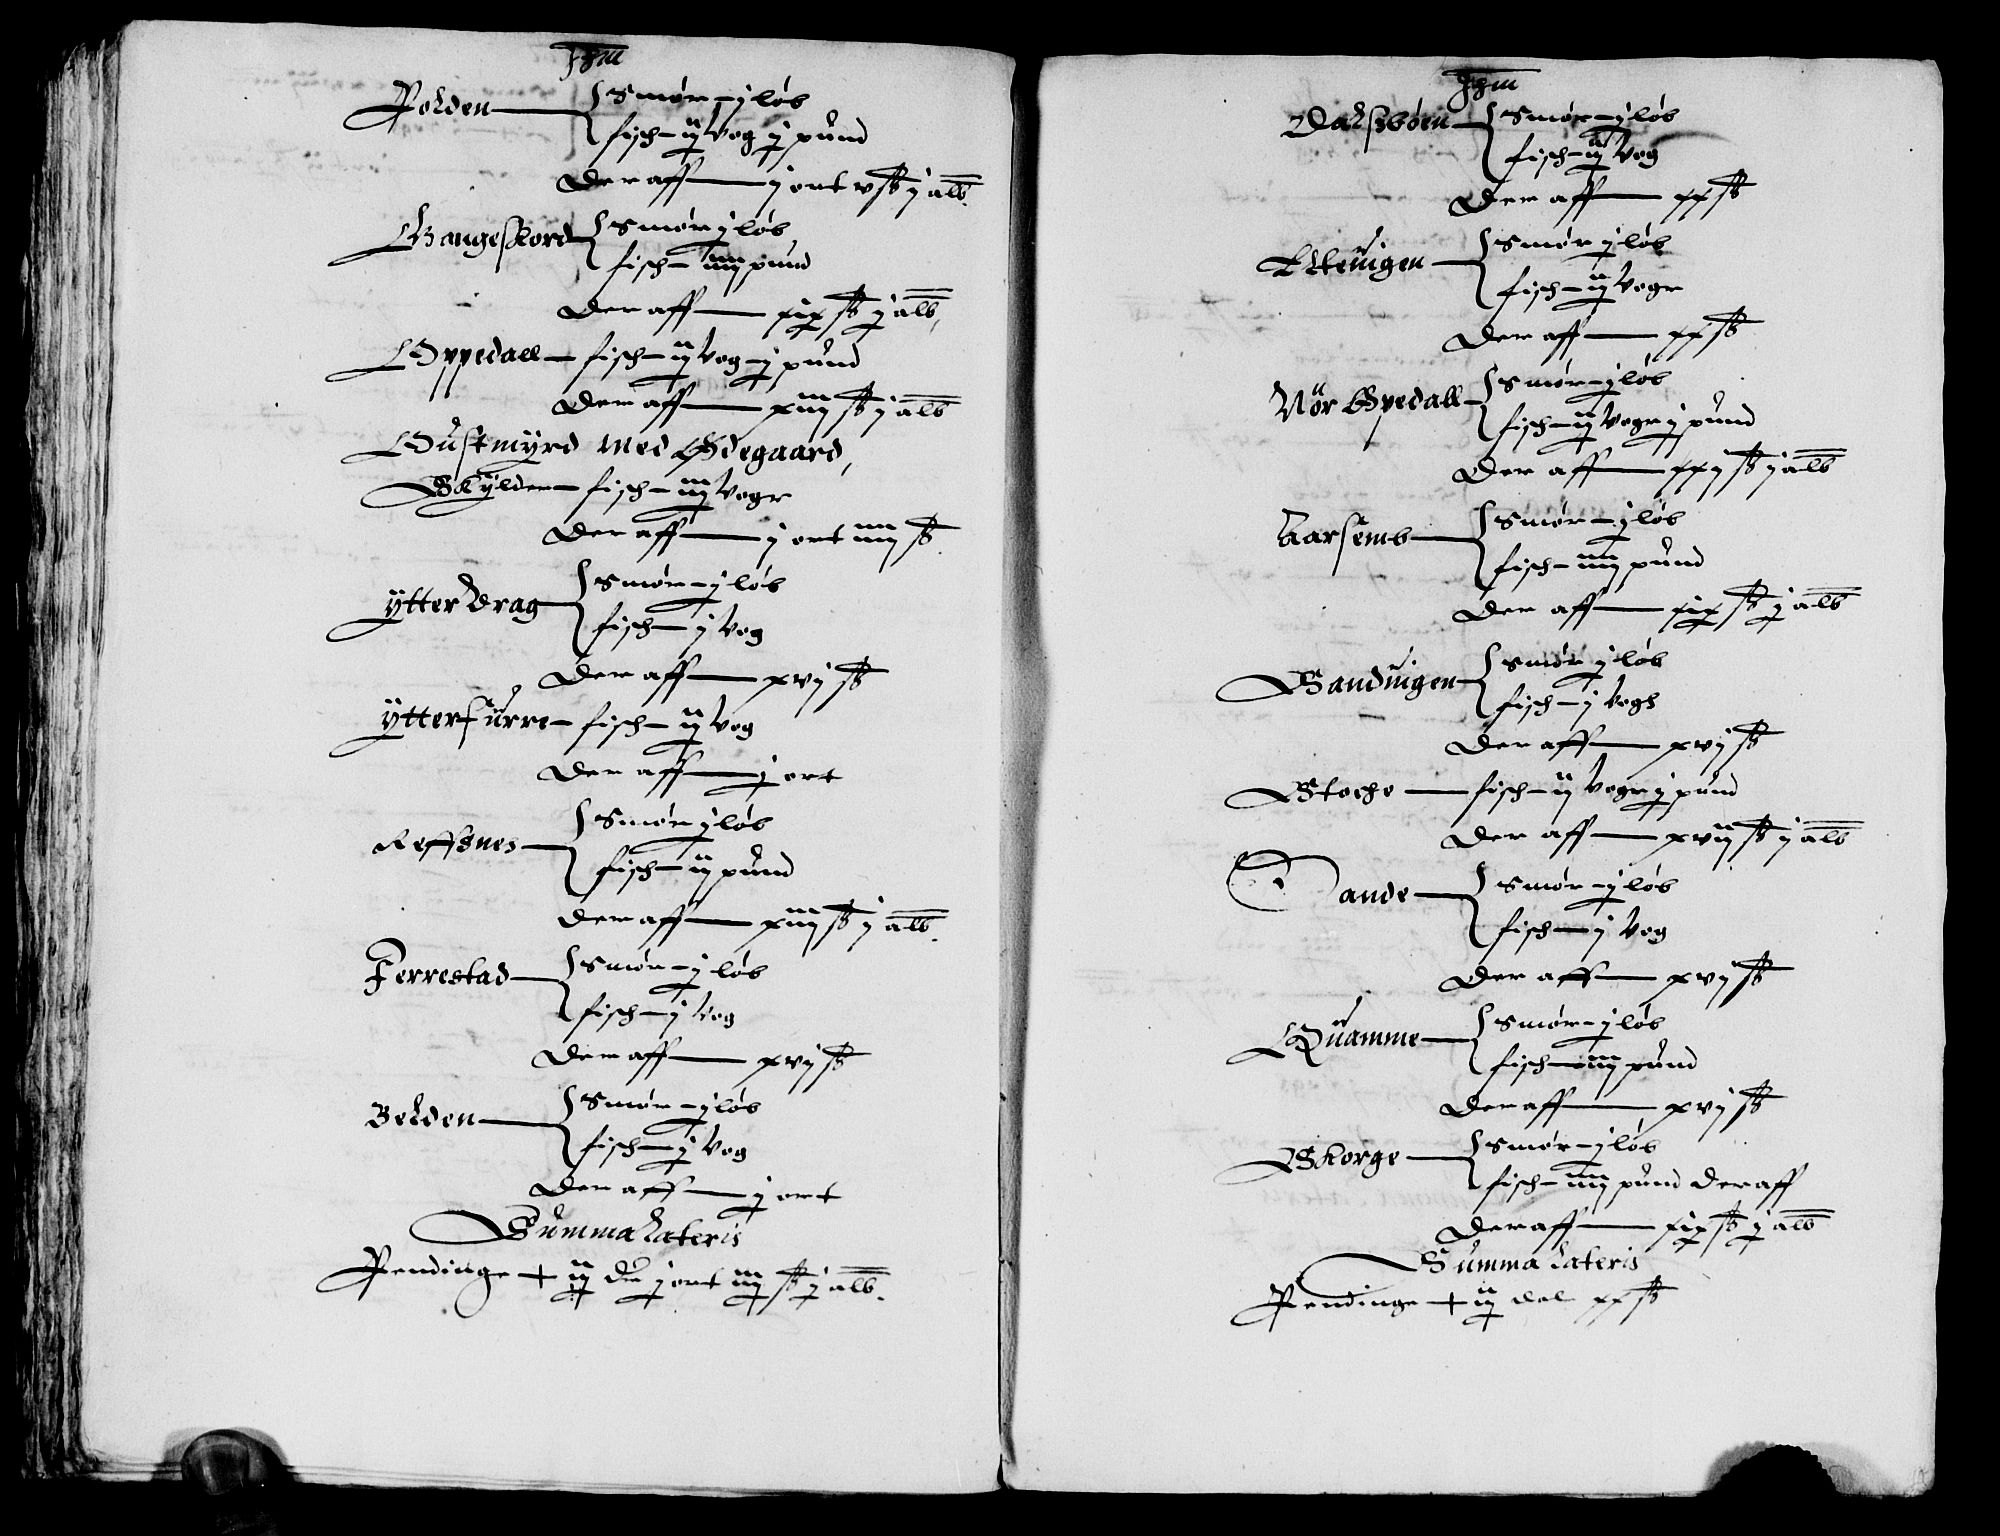 Polden { Smør – j løb
fisch – ij vog j pund
Der aff — j ort v ß j alb.
Gangeskord { Smør j løb
fisch – iiij pund
Der aff — xix ß j alb,
Oppedall – fisch – ij vog – j pund
Der aff — xiiij ß j alb
Gustmÿrd med Ødegaard,
Skÿlder – fisch – iij vogr
Der aff — j ort iiij ß.
Ÿtter Drag { Smør – j løb
fisch – j vog
Der aff — xvj ß
Ÿtterfurre – fisch – ij vog
Der aff — j ort
Reffsnes { Smør j løb
fisch – ij pund
Der aff — xiiij ß j alb.
Ferrestad { Smør – j løb
fisch – j vog
Der aff — xvj ß
Belden { Smør – j løb
fisch – j vog
Der aff — j ort
Summa Lateris
Pendinge + ij j ort iij ß j alb.
{ Smør – j løb
fisch – ij vog
Der aff — xx ß
{ Smør j løb
fisch – ij vogr
Der aff — xx ß
Nör Opedall { Smør – j løb
fisch – ij vogr j pund
Der aff — xxj ß j alb
Aarsemb { Smør – j løb
fisch – iiij pund
Der aff — xix ß j alb
Sanduigen { Smør j løb
fisch – j vogh
Der aff — xvj ß
Stoche — fisch – ij vogr j pund
Der aff — xvij ß j alb
Sande { Smør – j løb
fisch – j vog
Der aff — xvj ß
Quamme { Smør – j løb
fisch – iij pund
Der aff — xvj ß
Skorge { Smør – j løb
fisch – iiij pund Der aff
Der aff — xix ß j alb
Summa Lateris
Pendinge + ij dal xx ß